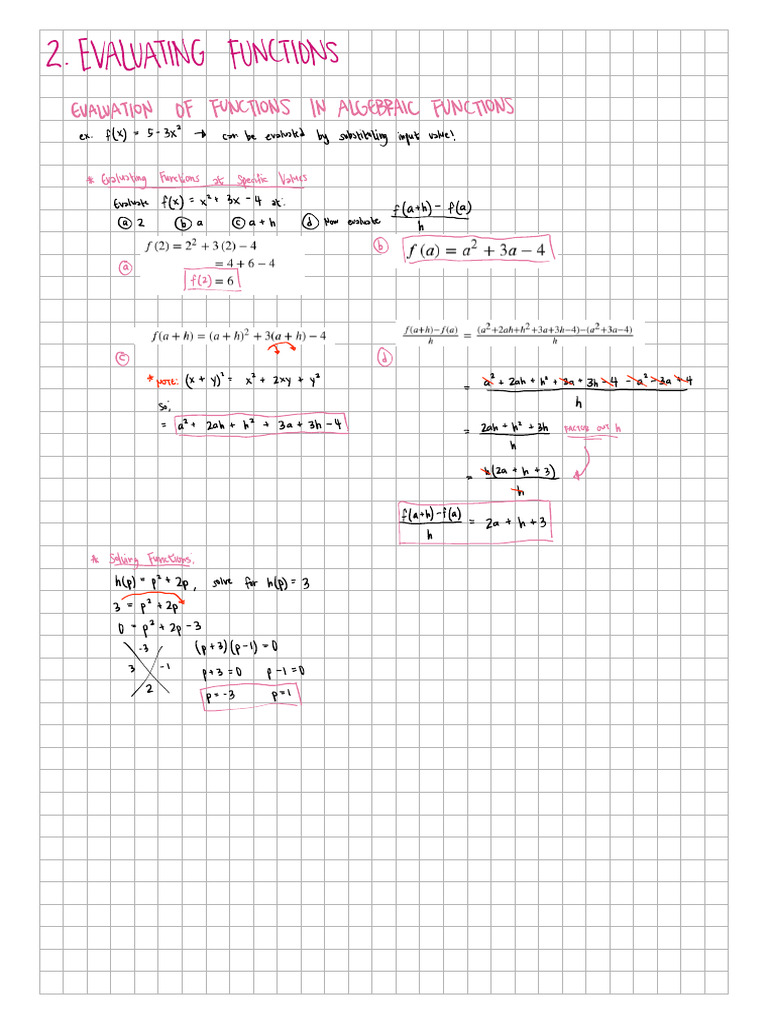 2. EVALUATING FUNCTIONS
EVALUATION OF FUNCTIONS IN ALGEBRAIC FUNCTIONS
ex. f(x) = 5 - 3x² → can be evaluated by substituting input value!
* Evaluating Functions at Specific Values
Evaluate f(x) = x² + 3x - 4 at:
ⓐ 2 ⓑ a ⓒ a + h ⓓ Now evaluate f(a+h) - f(a) / h
ⓐ f(2) = 2² + 3(2) - 4
= 4 + 6 - 4
f(2) = 6
ⓑ f(a) = a² + 3a - 4
ⓒ f(a + h) = (a + h)² + 3(a + h) - 4
* NOTE: (x + y)² = x² + 2xy + y²
So;
= a² + 2ah + h² + 3a + 3h - 4
ⓓ f(a+h)-f(a) / h = (a²+2ah+h²+3a+3h-4)-(a²+3a-4) / h
= a² + 2ah + h² + 3a + 3h - 4 - a² - 3a + 4 / h
= 2ah + h² + 3h / h FACTOR OUT h
= h(2a + h + 3) / h
f(a+h)-f(a) / h = 2a + h + 3
* Solving Functions.
h(p) = p² + 2p, solve for h(p) = 3
3 = p² + 2p
0 = p² + 2p - 3
-3
3 -1
2
(p+3)(p-1) = 0
p+3=0 p-1=0
p=-3 p=1